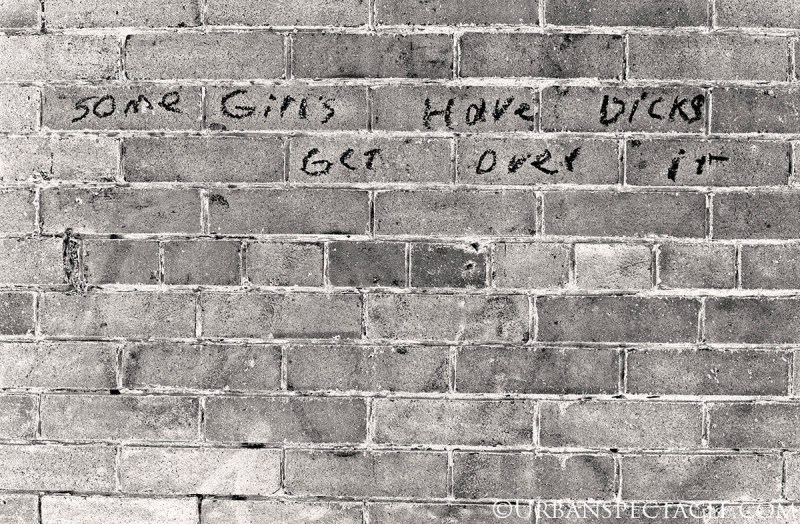 SOME GIRLS HAVE DICKS
GET OVER IT
©URBANSPECTACLE.COM